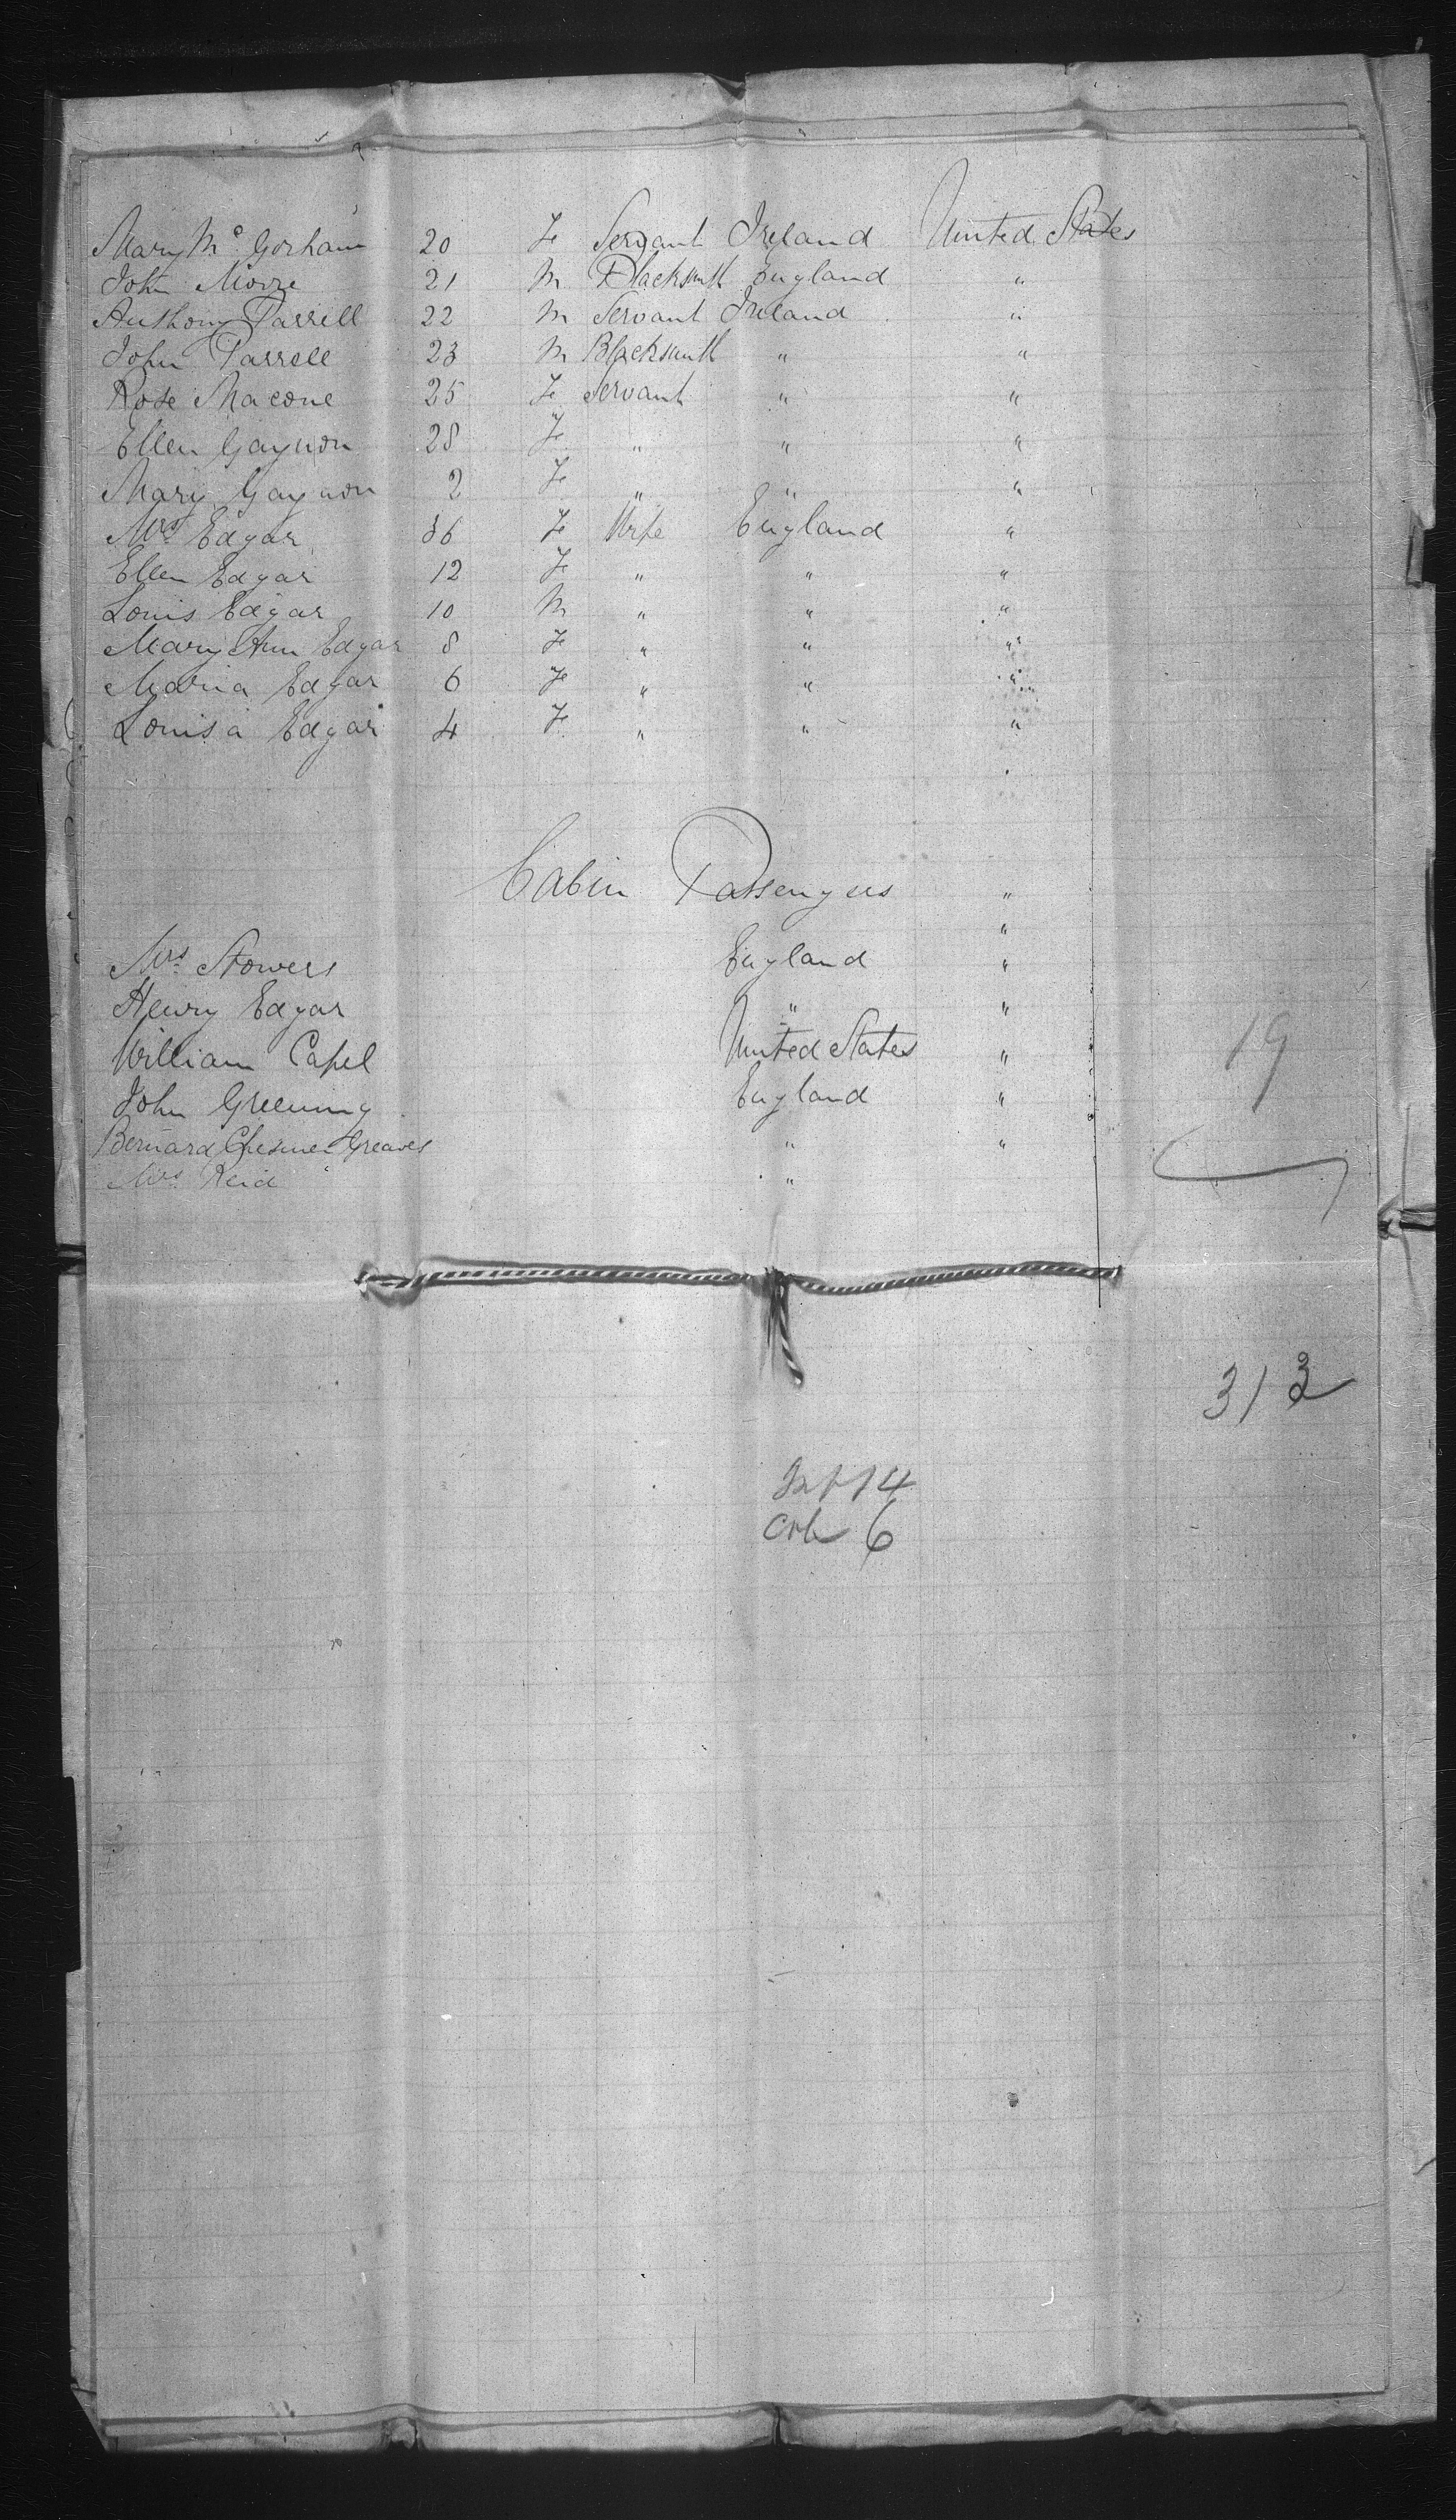 Mary Mc Gorham 20 F Servant Ireland United States
John Moore 21 M Blacksmith England "
Anthony Parrell 22 M Servant Ireland "
John Parrell 23 M Blacksmith " "
Rose Macone 25 F Servant " "
Ellen Gaynon 28 F " " "
Mary Gaynon 2 F " " "
Mrs Edgar 36 F Wife England "
Ellen Edgar 12 F " " "
Louis Edgar 10 M " " "
Mary Ann Edgar 8 F " " "
Maria Edgar 6 F " " "
Louisa Edgar 4 F " " "
Cabin Passengers "
"
Mrs Stowers England "
Henry Edgar " "
William Capel United States "
John Greening England "
Bernard Greaves " "
Mrs Reid "
19
313
14
6